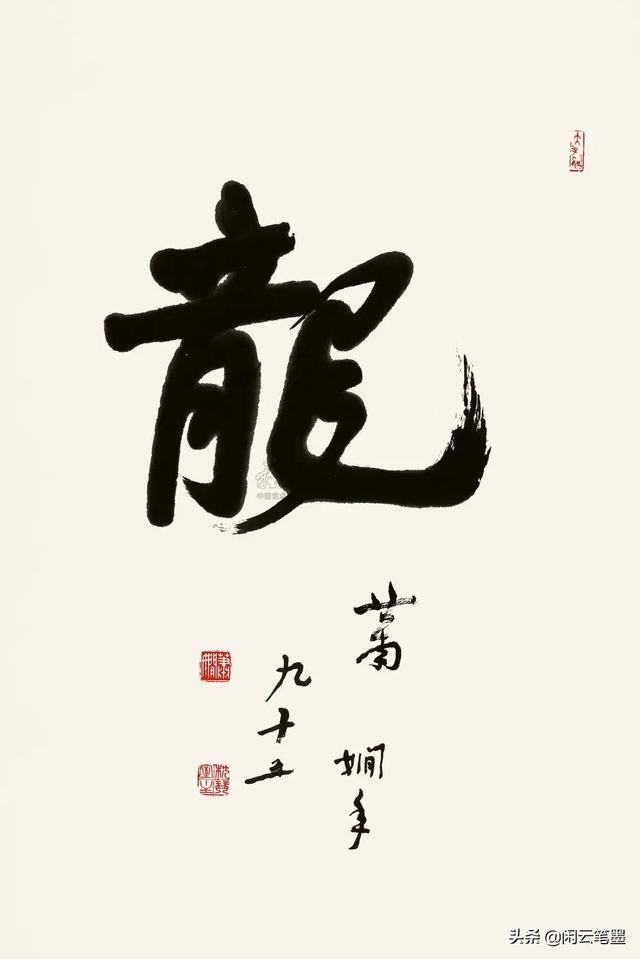 龍
萧娴年
九十五
头条 @闲云笔墨